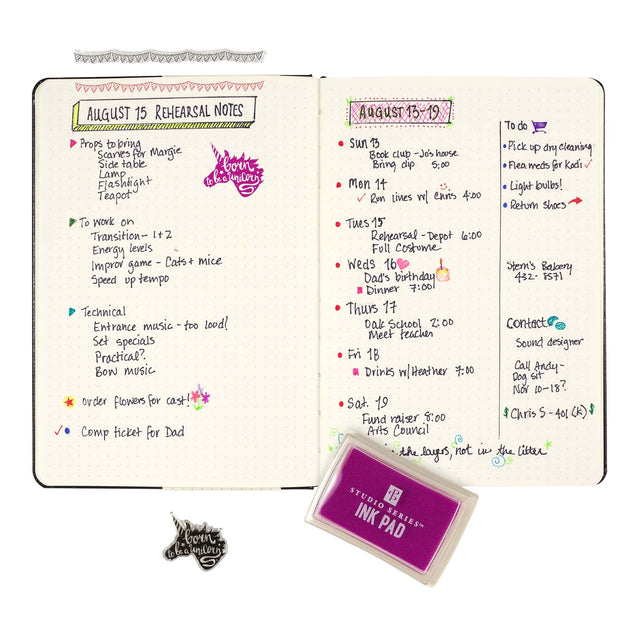 AUGUST 15 REHEARSAL NOTES
Props to bring
Scarves for Margie
Side table
Lamp
Flashlight
Teapot
born
to be a unicorn
To work on
Transition - 1+2
Energy levels
Improv game - Cats + mice
Speed up tempo
Technical
Entrance music - too loud!
Set specials
Practical?
Bow music
order flowers for cast!
Comp ticket for Dad
AUGUST 13-19
Sun 13
Book club - Jo's house
Bring dip 5:00
Mon 14
Run lines w/ Chris 4:00
Tues 15
Rehearsal - Depot 6:00
Full Costume
Weds 16
Dad's birthday
Dinner 7:00
Thurs 17
Oak School 2:00
Meet teacher
Fri 18
Drinks w/ Heather 7:00
Sat. 19
Fund raiser 8:00
Arts Council
the layers, not in the litter
To do
Pick up dry cleaning
Flea meds for Kodi
Light bulbs!
Return shoes
Stern's Bakery
432-8571
Contact
Sound designer
Call Andy-
Dog sit
Nov 10-18?
$ Chris S - 401 (K) $
STUDIO SERIES™
INK PAD
born
to be a unicorn